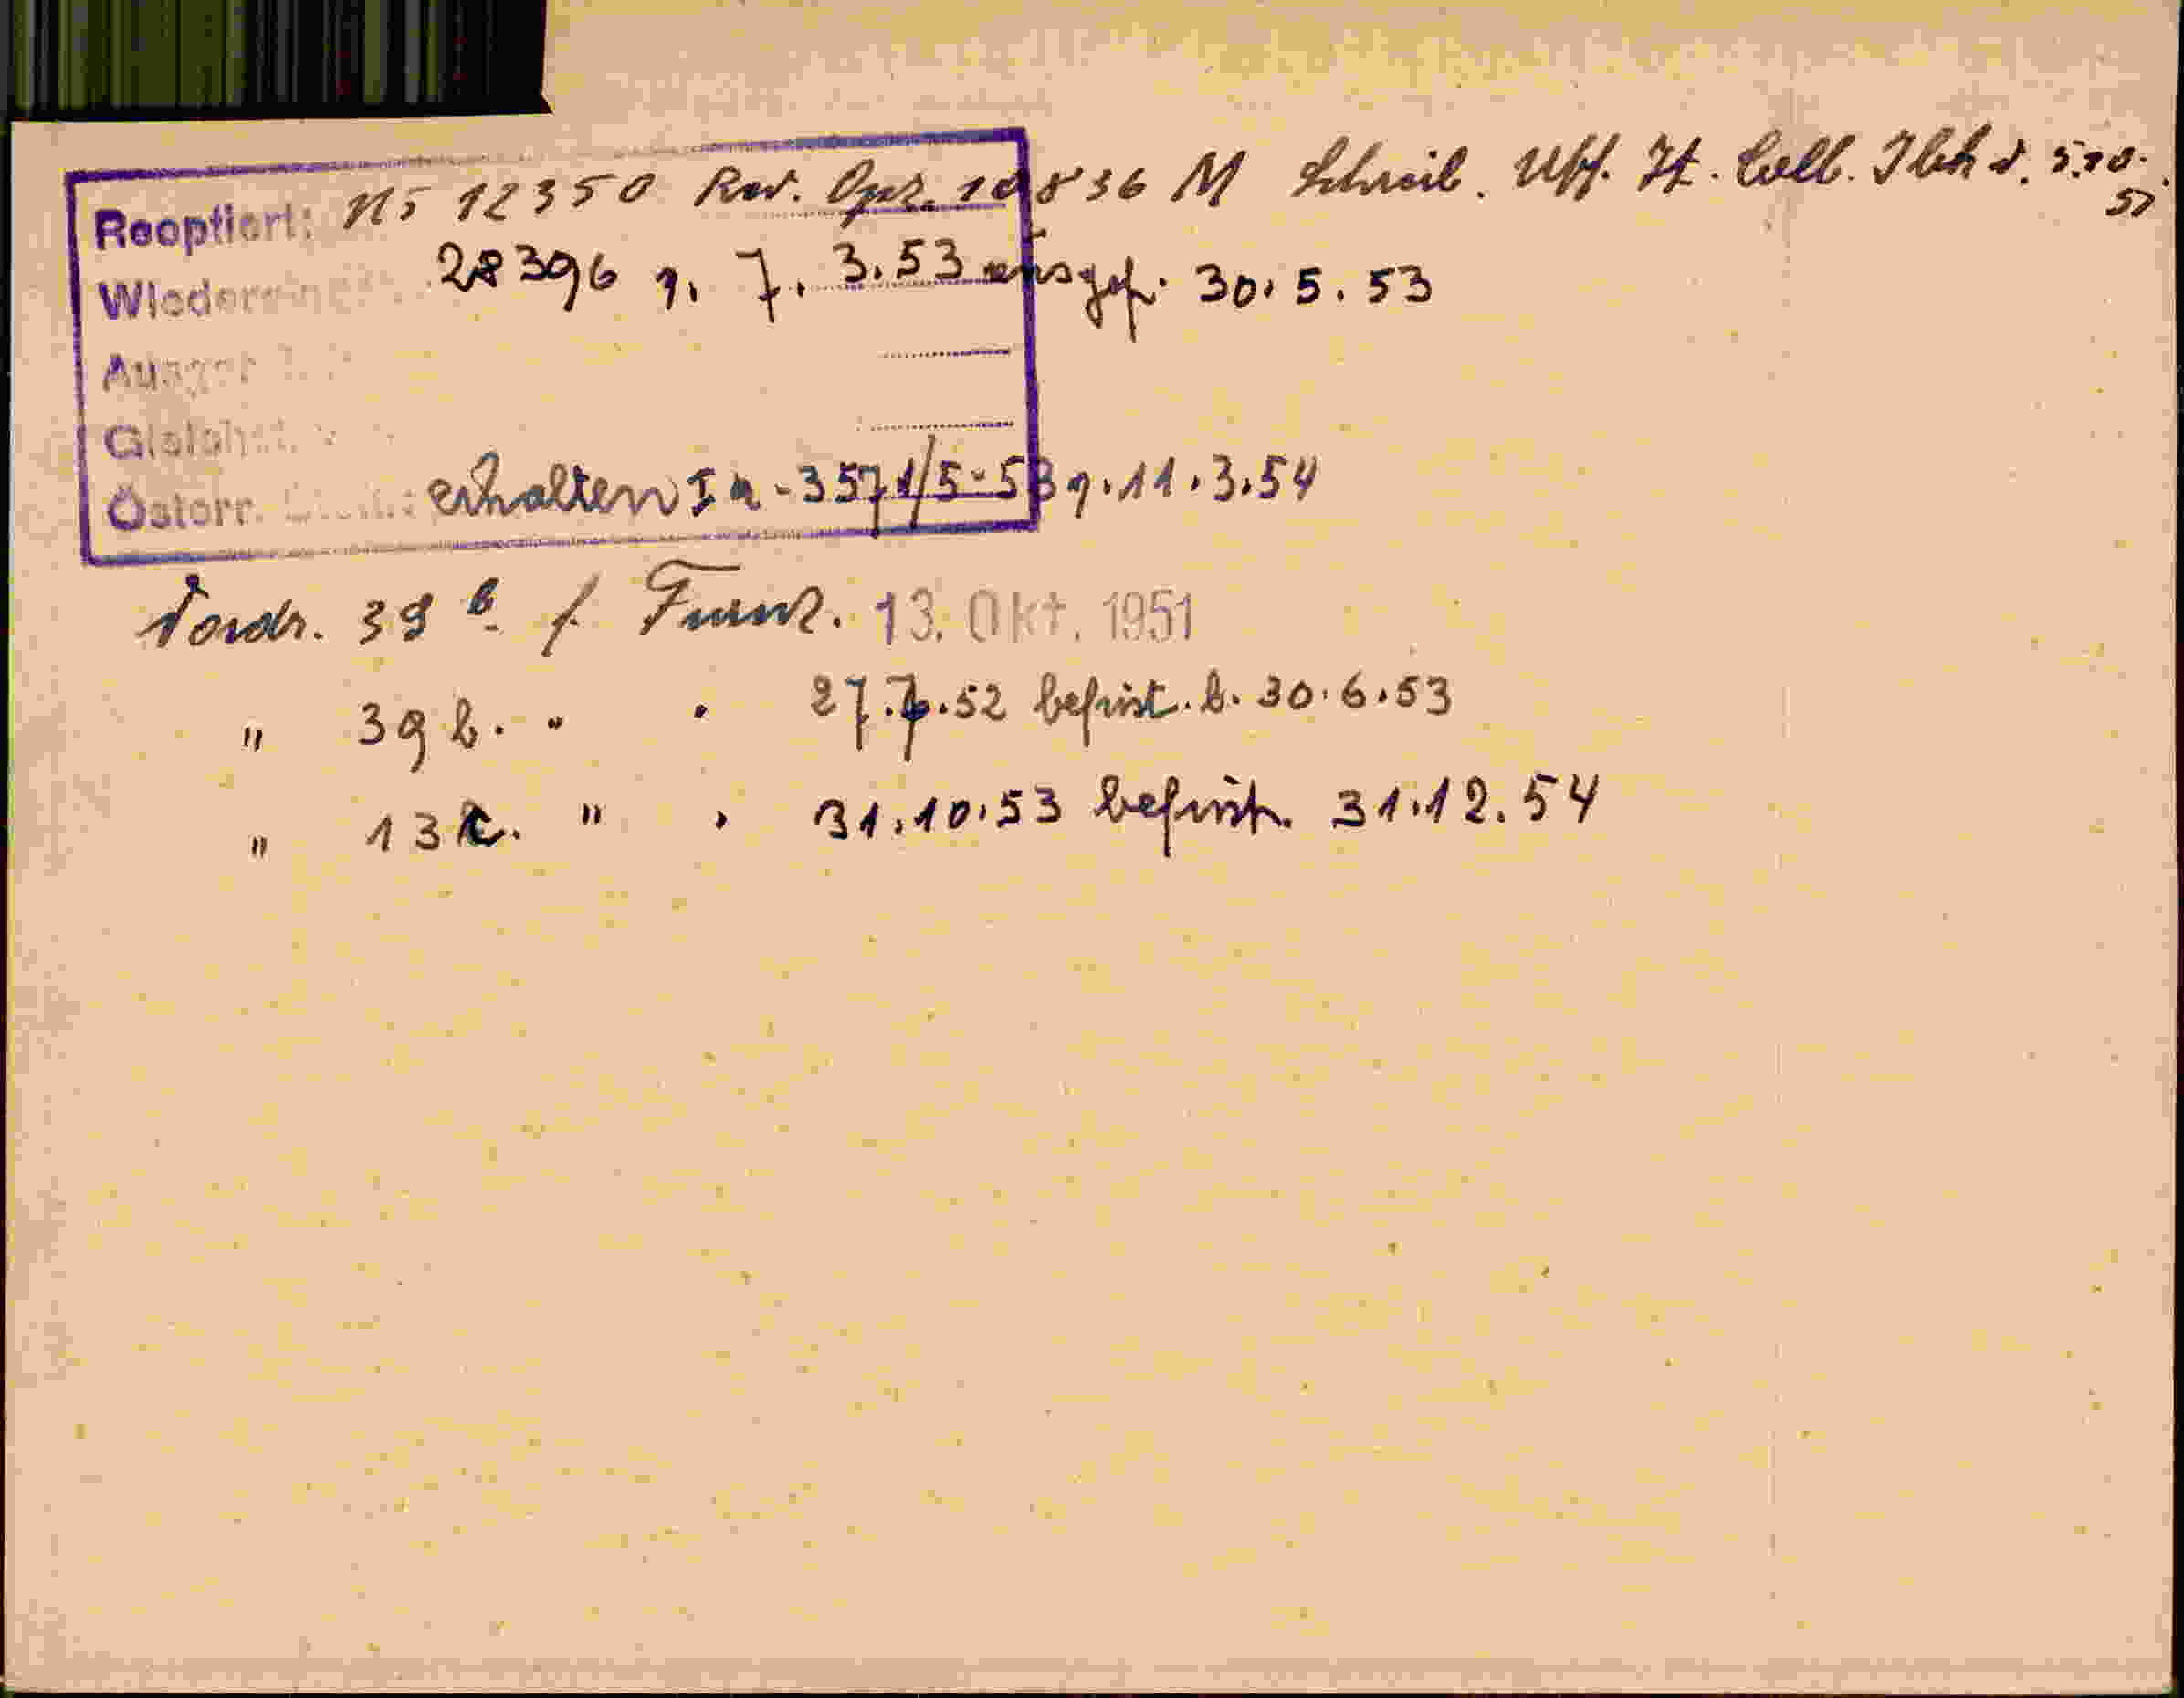 Reoptiert: N5 12350 Rev. Opz. 10836 M Schreib. Uff. It. Coll. Ibk v. 5.10.
28396 v. 7. 3.53 ausgef. 30.5.53
Österr. erhalten Ia-3571/5-53 v. 11.3.54
Vordr. 39 b f. 13. Okt. 1951
" 39 b. " " 27.7.52 befrist. b. 30.6.53
" 13 c. " " 31.10.53 befrist. 31.12.54